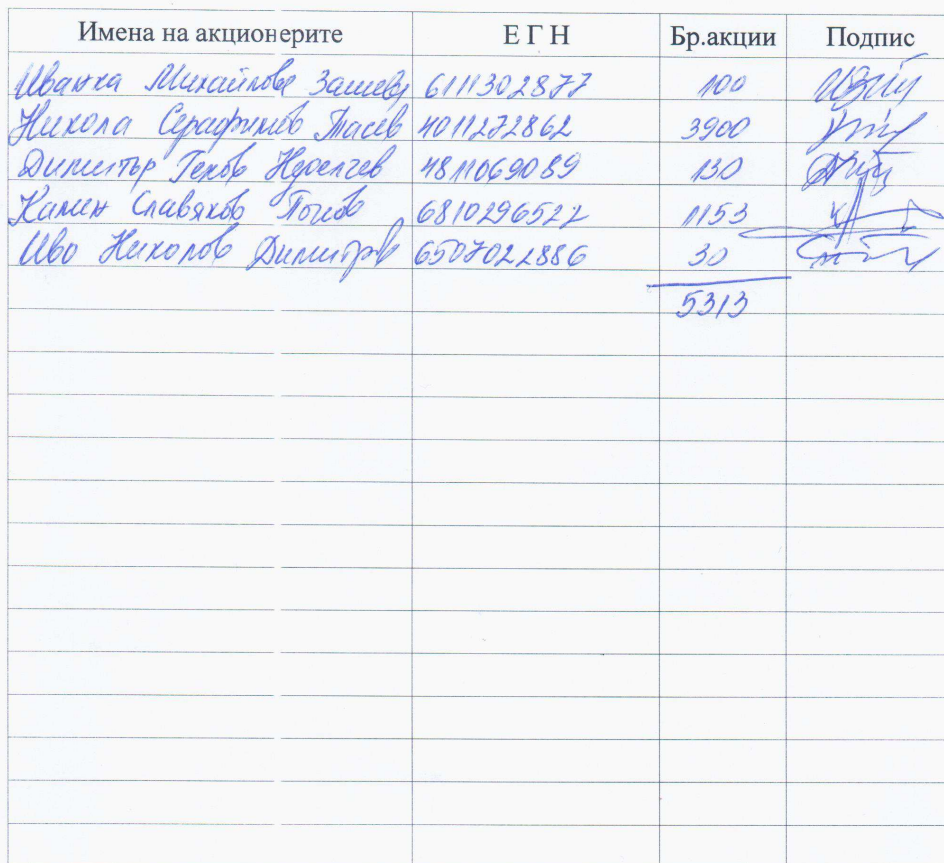 Имена на акционерите ЕГН Бр.акции Подпис
Иванка Михайлова 6111302877 100
Никола Серафимов Тасев 4011272862 3900
Димитър Генов Неделчев 4811069089 130
Камен Славяков 6810296522 1153
Иво Николов Димитров 6507022886 30
5313